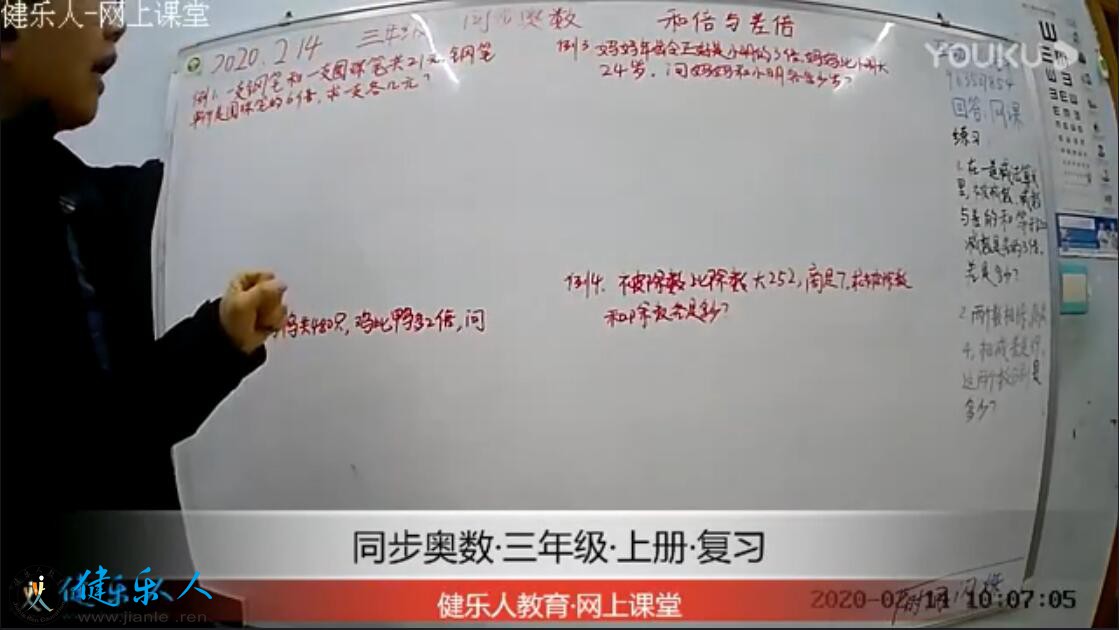 健乐人-网上课堂
2020.2.14 三年级 同步奥数 和倍与差倍
例1.一支钢笔和一支圆珠笔共21元.钢笔
单价是圆珠笔的6倍.求一支各几元?
例3.妈妈年龄今年正好是小明的3倍.妈妈比小明大
24岁.问妈妈和小明各多少岁?
鸭共480只,鸡比鸭多2倍,问
例4.被除数比除数大252,商是7,求被除数
和除数各是多少?
回答:网课
练习
1.在一道减法算式
里,被减数、减数
与差的和等于
减数是差的3倍.
差是多少?
2.两个数相除,商是
4,相减差是
这两个数分别是
多少?
YOUKU
同步奥数·三年级·上册·复习
健乐人教育·网上课堂
健乐人
www.jianle.ren
2020-02-14 10:07:05